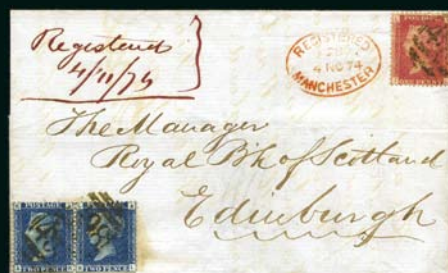 Registered
4/11/74
REGISTERED
4 NO 74
MANCHESTER
The Manager
Royal Bk of Scotland
Edinburgh
POSTAGE POSTAGE
TWO PENCE TWO PENCE